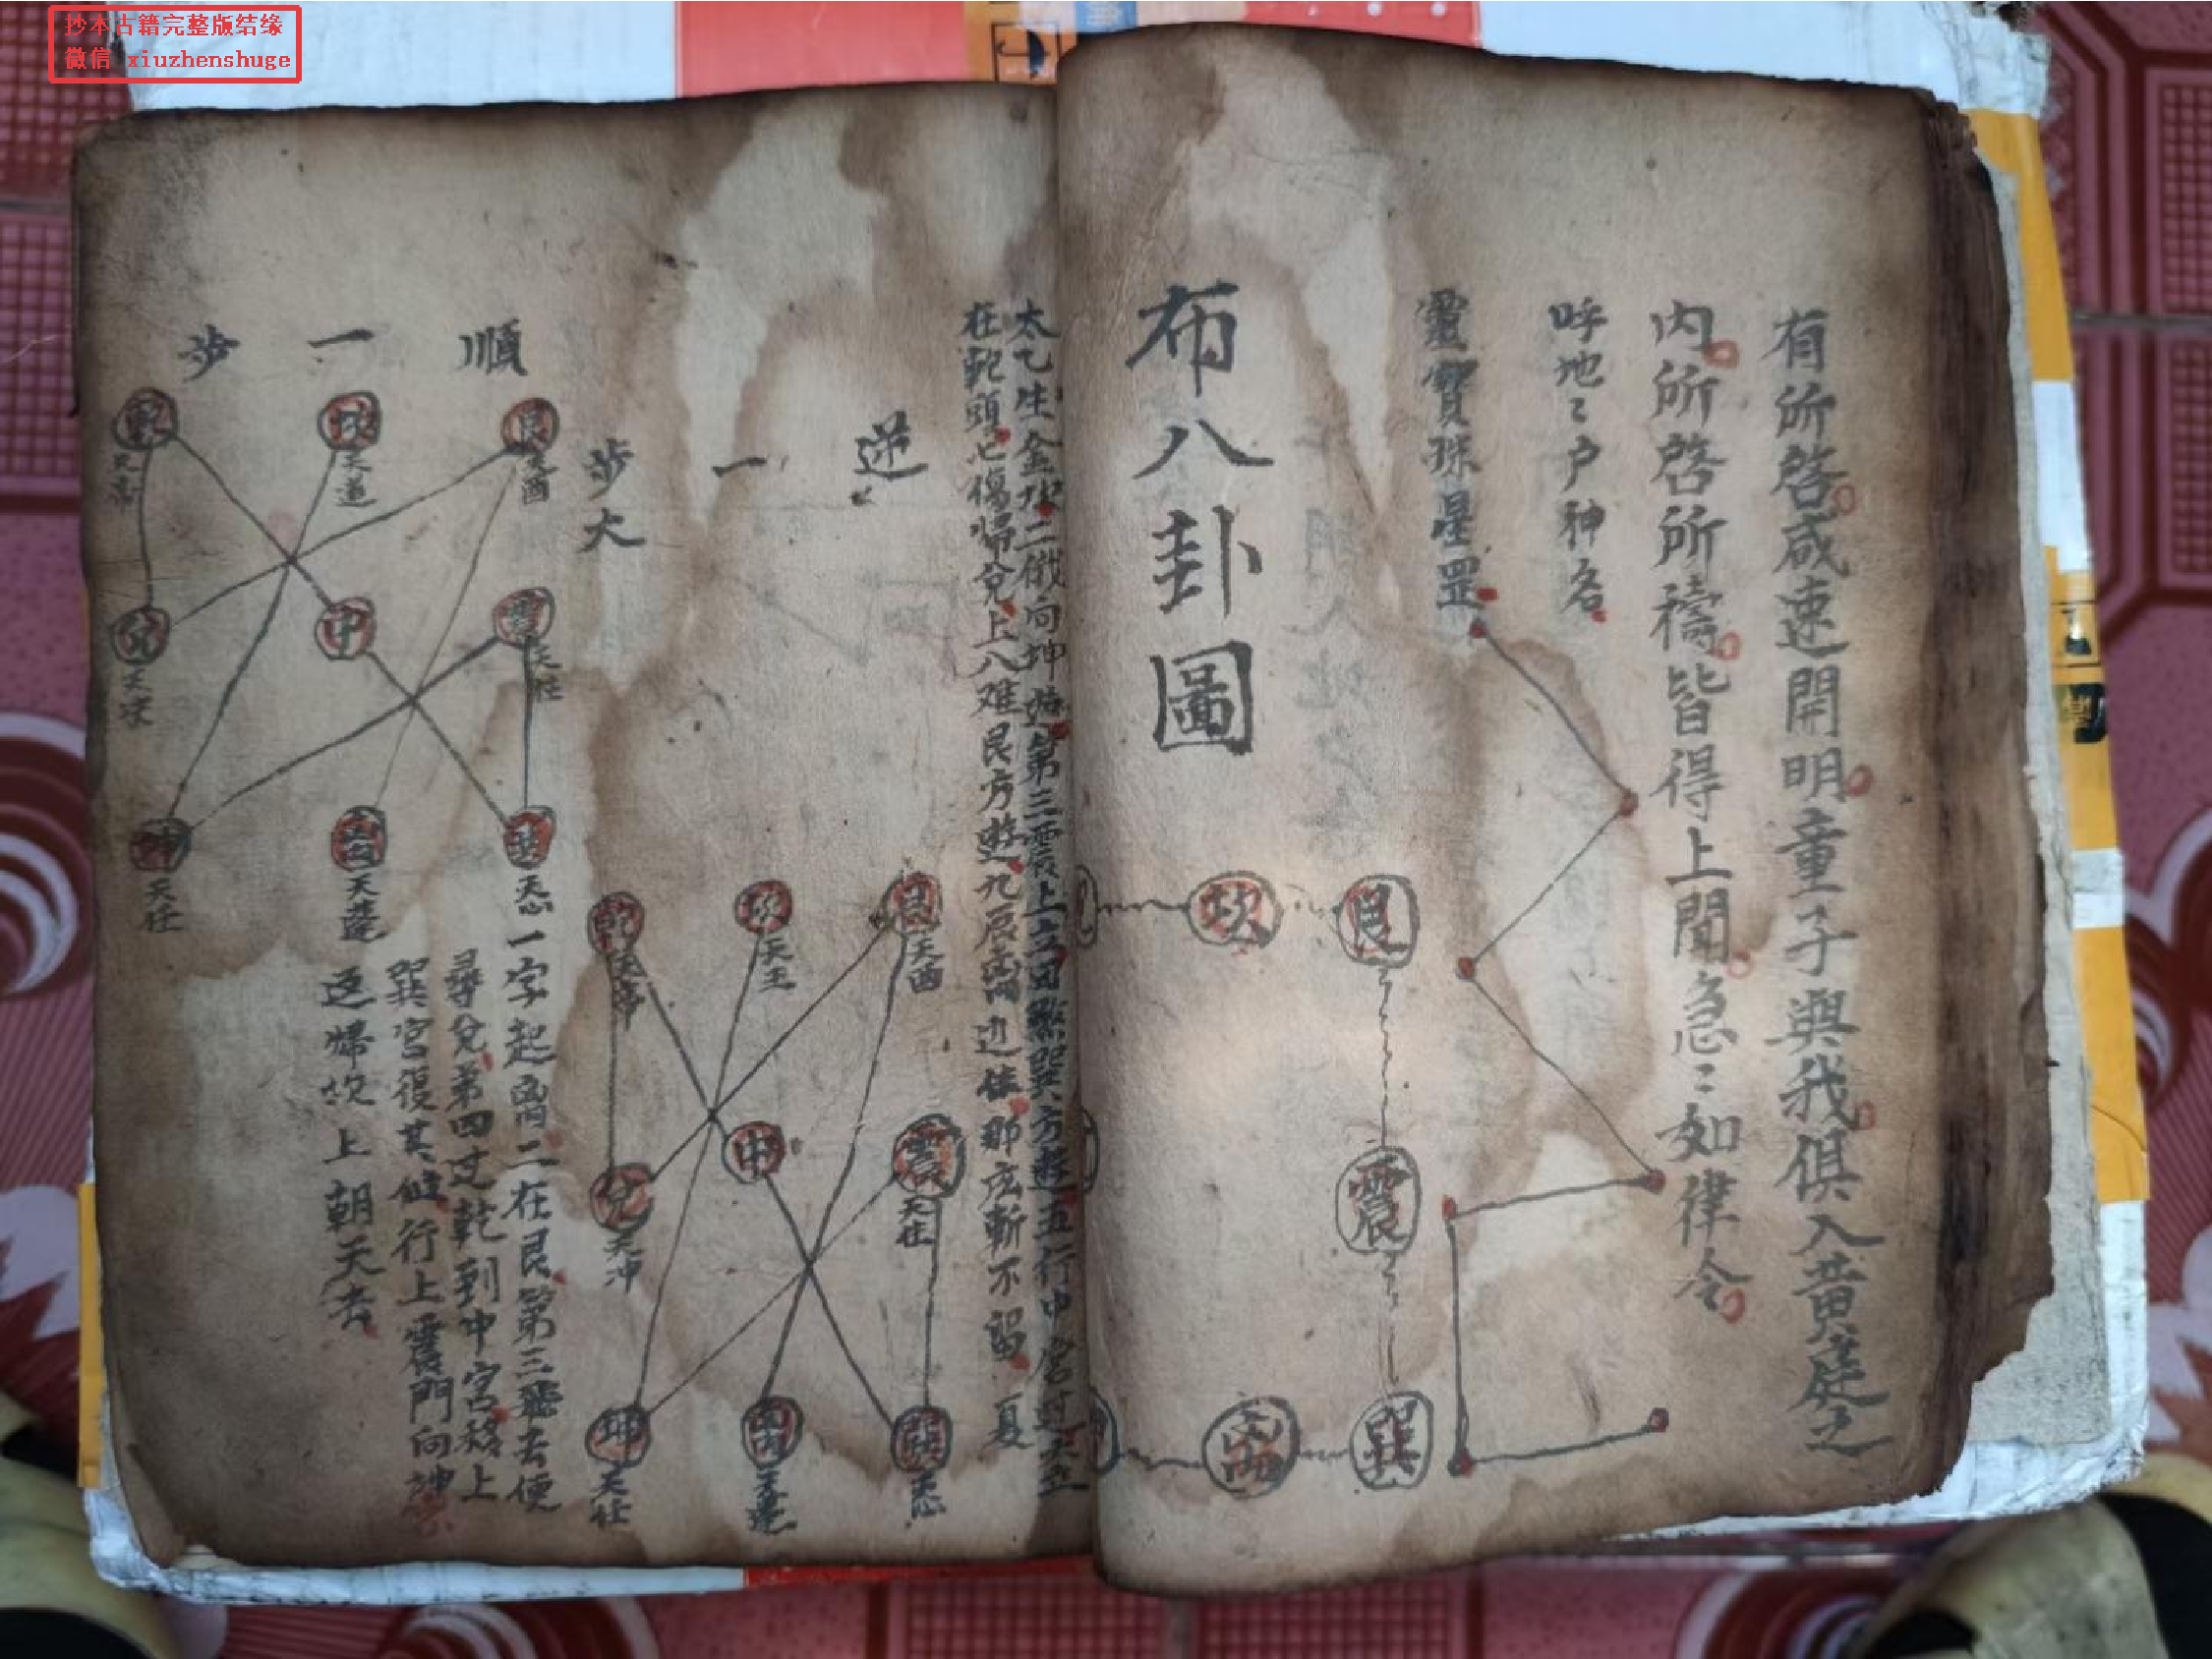 抄本古籍完整版结缘
微信 xiuzhenshuge
有所啓咸速開明童子與我俱入黄庭之
内所啓所禱皆得上聞急〻如律令
呼地〻户神名
靈寳珠星罡
布八卦圖
艮
坎
震
巽
离
太乙生金坎二俄向坤遊第三震上立
巽方遊五行中宫
在乾頭七傷歸兌上八难艮方遊九辰离
边
斬不留
夏
逆一步大
艮
天酉
坎
天王
乾
震
天任
中
兌
天冲
巽
天心
离
天蓬
坤
天任
順一步
艮
坎
乾
震
天任
中
兌
巽
天心
离
天蓬
坤
天任
一字起离二在艮第三飛去便
尋兌第四过乾到中宫移上
巽宫復其
行上震門向坤
返歸坎上朝天去